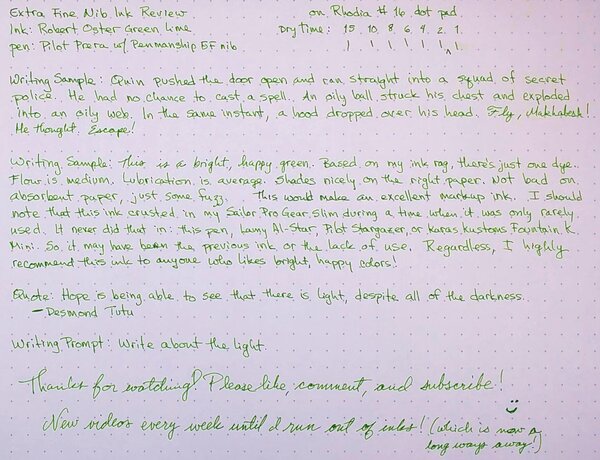 Extra Fine Nib Ink Review on Rhodia #16 dot pad
Ink: Robert Oster Green Lime Dry Time: 15 10 8 6 4 2 1
pen: Pilot Prera w/ Penmanship EF nib
Writing Sample: Quin pushed the door open and ran straight into a squad of secret
police. He had no chance to cast a spell. An oily ball struck his chest and exploded
into an oily web. In the same instant, a hood dropped over his head. Fly, Makhabesh!
He thought. Escape!
Writing Sample: This is a bright, happy green. Based on my ink rag, there's just one dye.
Flow is medium. Lubrication is average. Shades nicely on the right paper. Not bad on
absorbent paper, just some fuzz. This would make an excellent markup ink. I should
note that this ink crusted in my Sailor Pro Gear Slim during a time when it was only rarely
used. It never did that in: this pen, Lamy Al-Star, Pilot Stargazer, or Karas Kustoms Fountain K
Mini. So it may have been the previous ink or the lack of use. Regardless, I highly
recommend this ink to anyone who likes bright, happy colors!
Quote: Hope is being able to see that there is light, despite all of the darkness.
—Desmond Tutu
Writing Prompt: Write about the light.
Thanks for watching! Please like, comment, and subscribe!
New videos every week until I run out of inks! (which is now a
long ways away!)